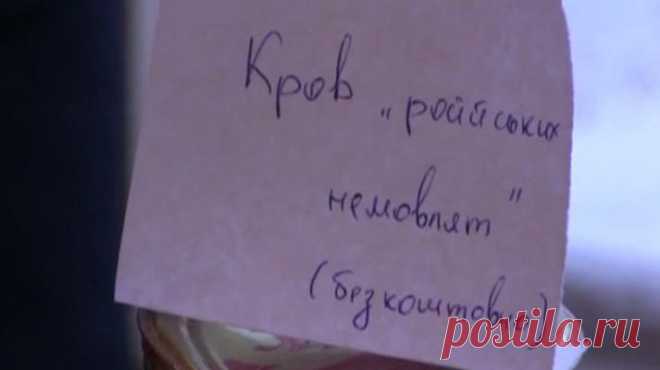 Кров „ройських
немовлят"
(безкоштовно)
postila.ru